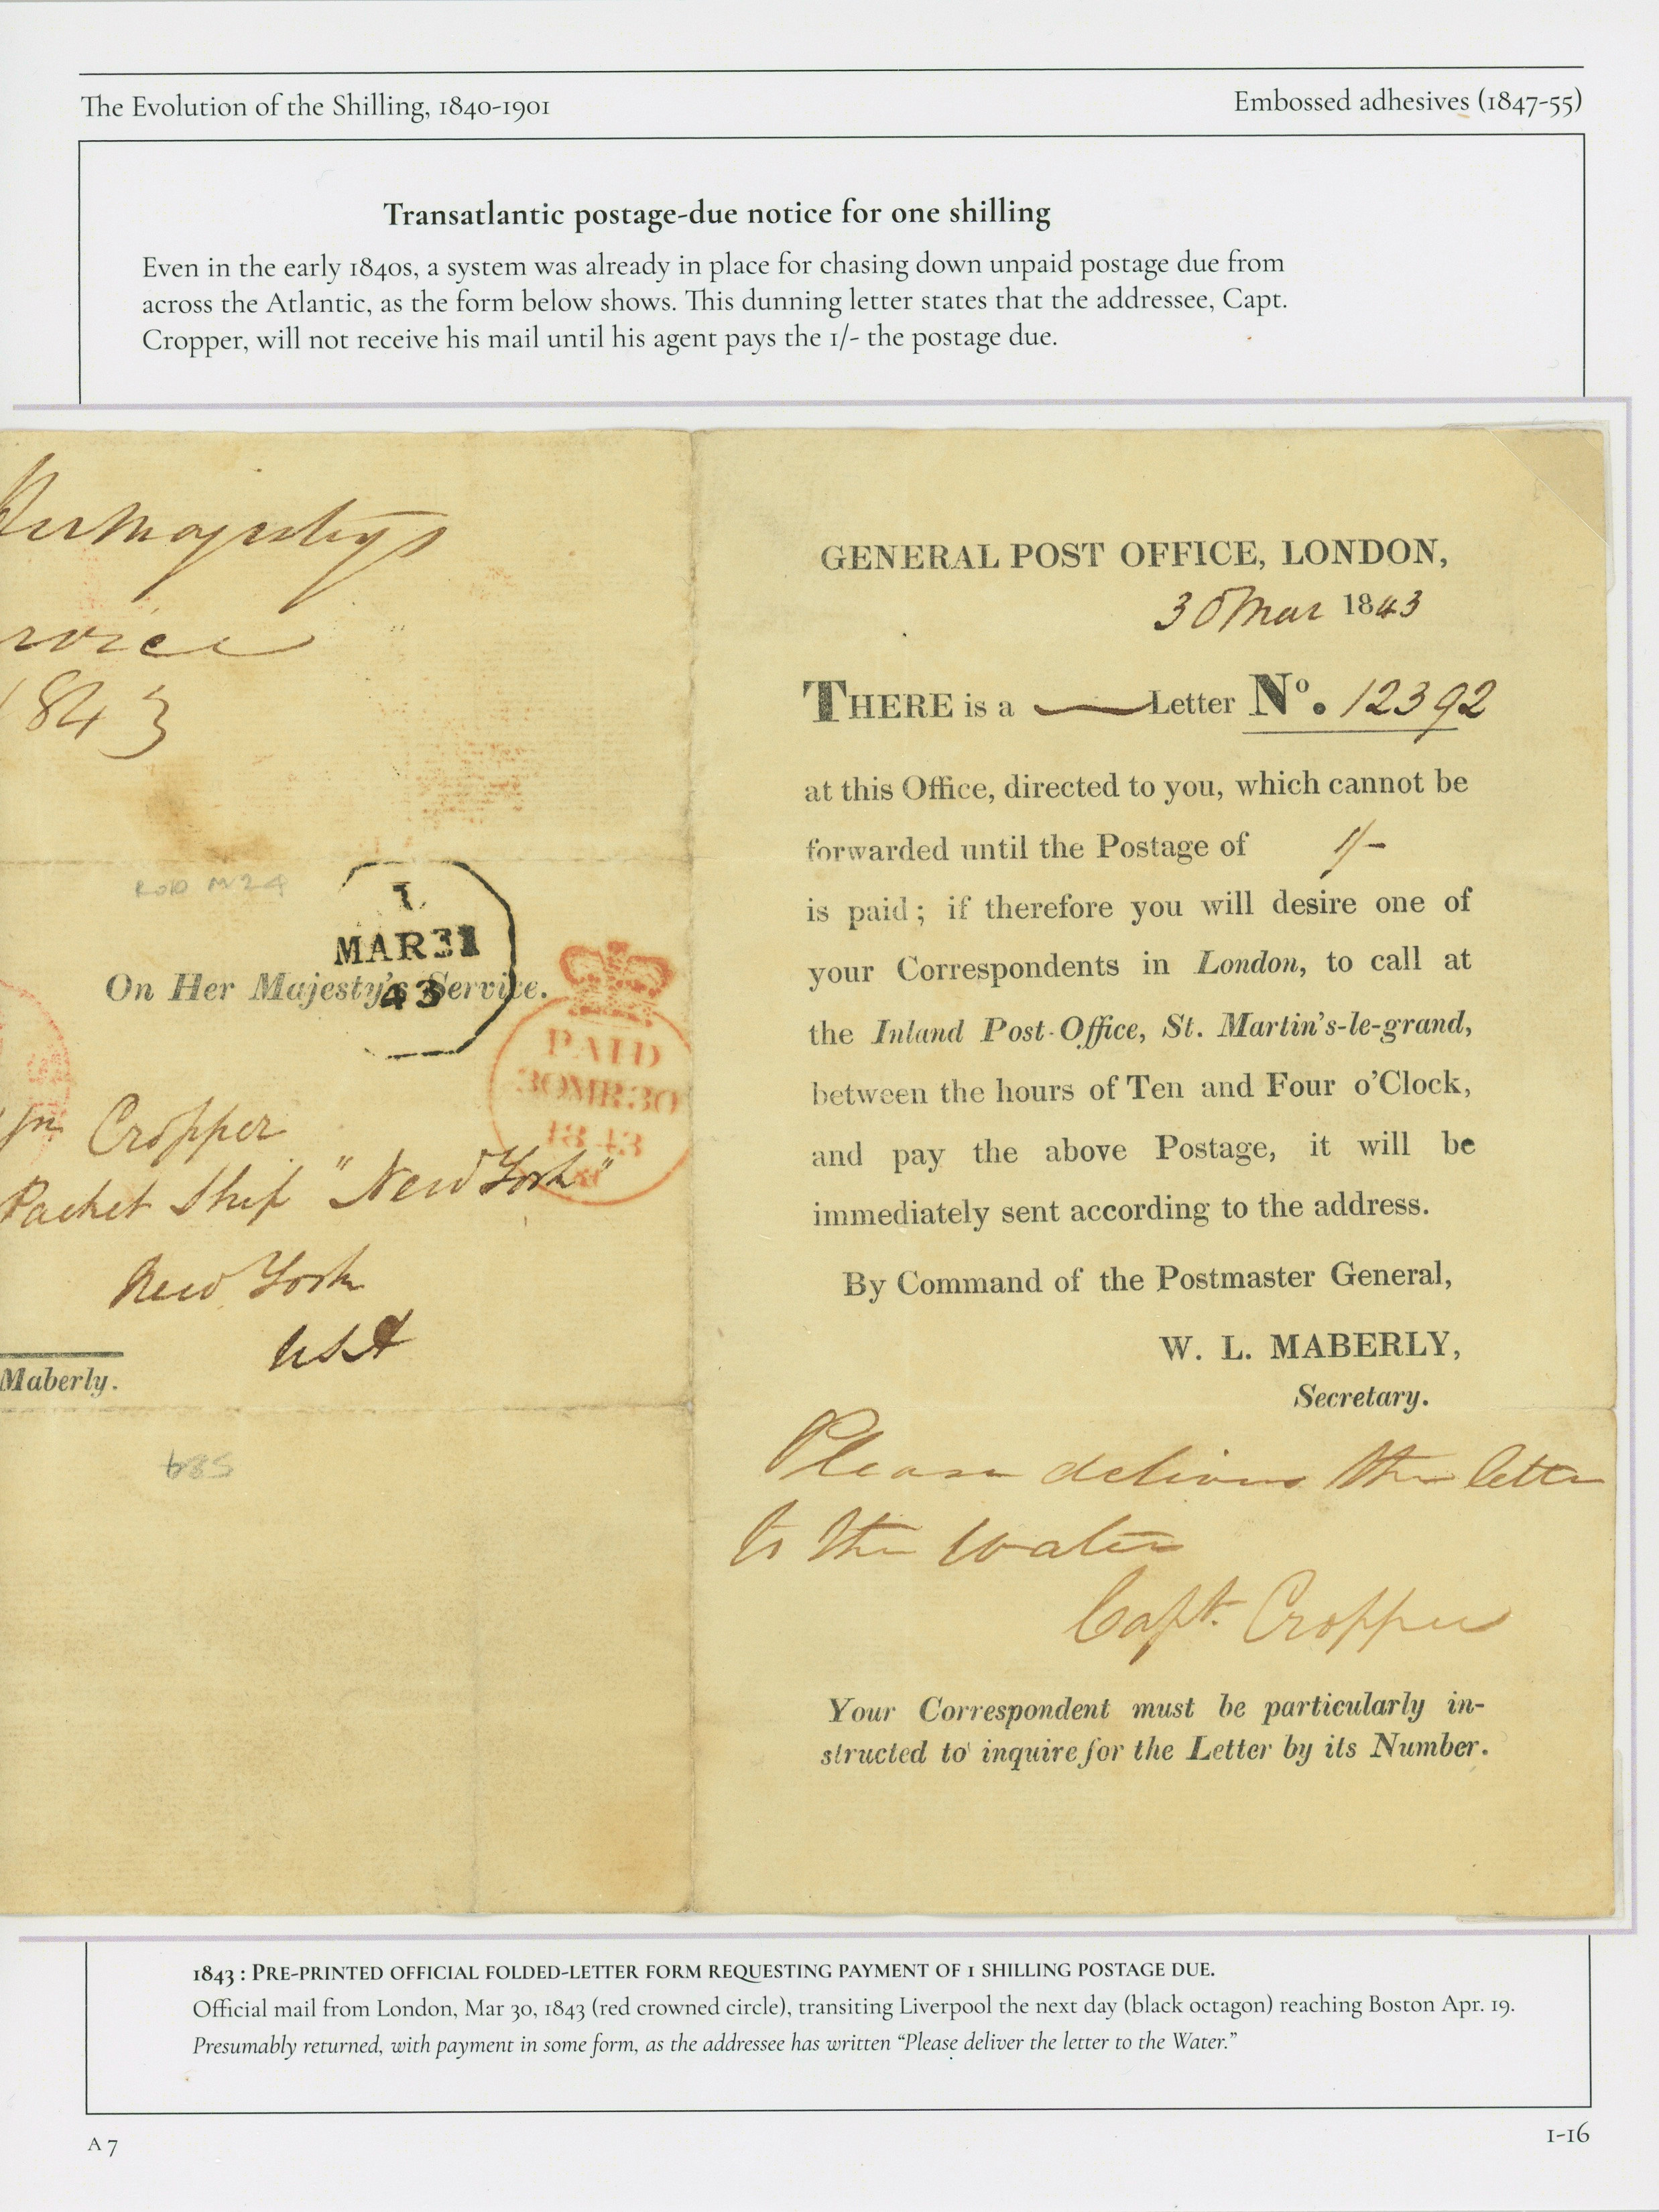 The Evolution of the Shilling, 1840-1901
Embossed adhesives (1847-55)
Transatlantic postage-due notice for one shilling
Even in the early 1840s, a system was already in place for chasing down unpaid postage due from
across the Atlantic, as the form below shows. This dunning letter states that the addressee, Capt.
Cropper, will not receive his mail until his agent pays the 1/- the postage due.
Her Majestys
rvice
1843
L
MAR 31
43
On Her Majesty's Service.
PAID
30MR30
1843
Cropper
Packet Ship "New York"
New York
USA
Maberly.
GENERAL POST OFFICE, LONDON,
30 Mar 1843
THERE is a Letter No. 12392
at this Office, directed to you, which cannot be
forwarded until the Postage of 1/-
is paid; if therefore you will desire one of
your Correspondents in London, to call at
the Inland Post-Office, St. Martin's-le-grand,
between the hours of Ten and Four o'Clock,
and pay the above Postage, it will be
immediately sent according to the address.
By Command of the Postmaster General,
W. L. MABERLY,
Secretary.
Please deliver the letter
to the Water
Capt. Cropper
Your Correspondent must be particularly in-
structed to inquire for the Letter by its Number.
1843 : PRE-PRINTED OFFICIAL FOLDED-LETTER FORM REQUESTING PAYMENT OF 1 SHILLING POSTAGE DUE.
Official mail from London, Mar 30, 1843 (red crowned circle), transiting Liverpool the next day (black octagon) reaching Boston Apr. 19.
Presumably returned, with payment in some form, as the addressee has written “Please deliver the letter to the Water.”
A 7
1-16